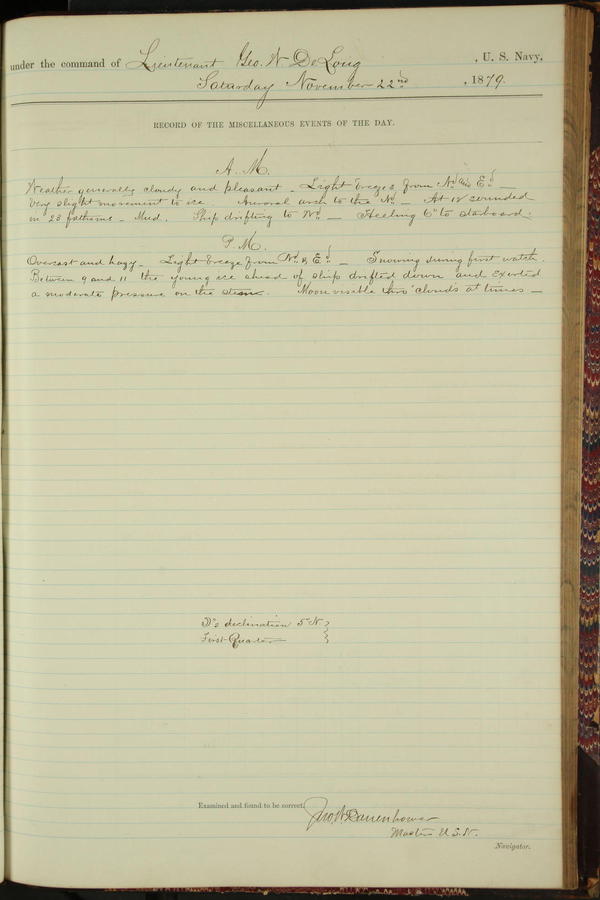 under the command of Lieutenant Geo. W. De Long, U. S. Navy,
Saturday November 22nd, 1879.
RECORD OF THE MISCELLANEOUS EVENTS OF THE DAY.
A. M.
Weather generally cloudy and pleasant – Light breezes from Nd and Ed
Very slight movement to ice. Auroral arch to the Nd – At 12 sounded
in 28 fathoms – Mud. Ship drifting to Nd – Heeling 6° to starboard.
P. M.
Overcast and hazy – Light breeze from Nd & Ed – Snowing during first watch.
Between 9 and 11 the young ice ahead of ship drifted down and exerted
a moderate pressure on the stem. Moon visible thro' clouds at times –
declination 5° N }
First Quarter }
Examined and found to be correct.
Jno. W. Danenhower
Master U.S.N.
Navigator.